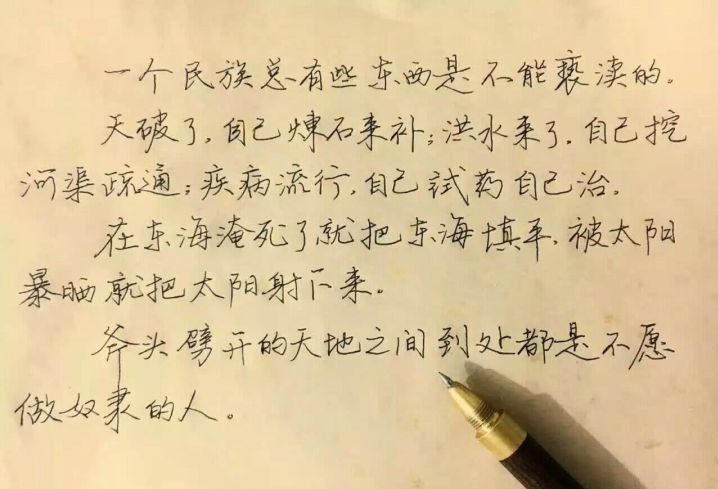 一个民族总有些东西是不能亵渎的。
天破了,自己炼石来补;洪水来了,自己挖
河渠疏通;疾病流行,自己试药自己治。
在东海淹死了就把东海填平,被太阳
暴晒就把太阳射下来。
斧头劈开的天地之间到处都是不愿
做奴隶的人。